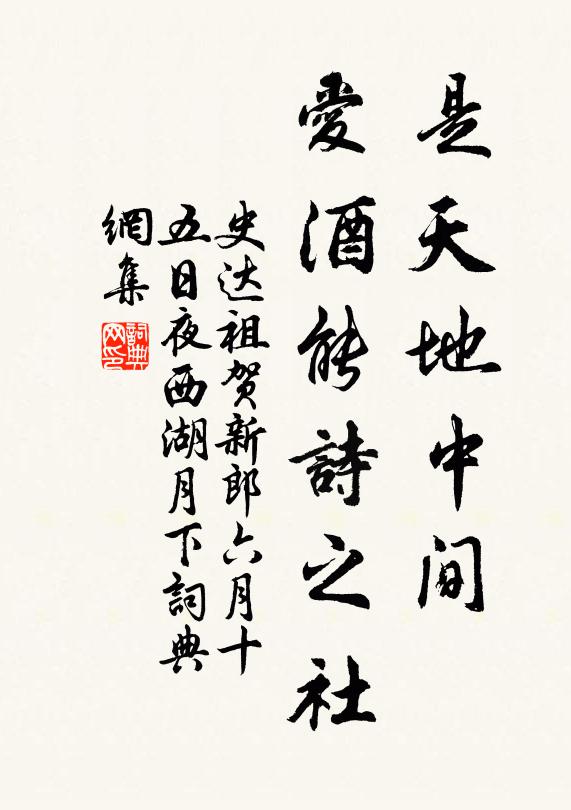 是天地中間
愛酒能詩之社
史达祖贺新郎六月十
五日夜西湖月下詞典
網集
詞典网印